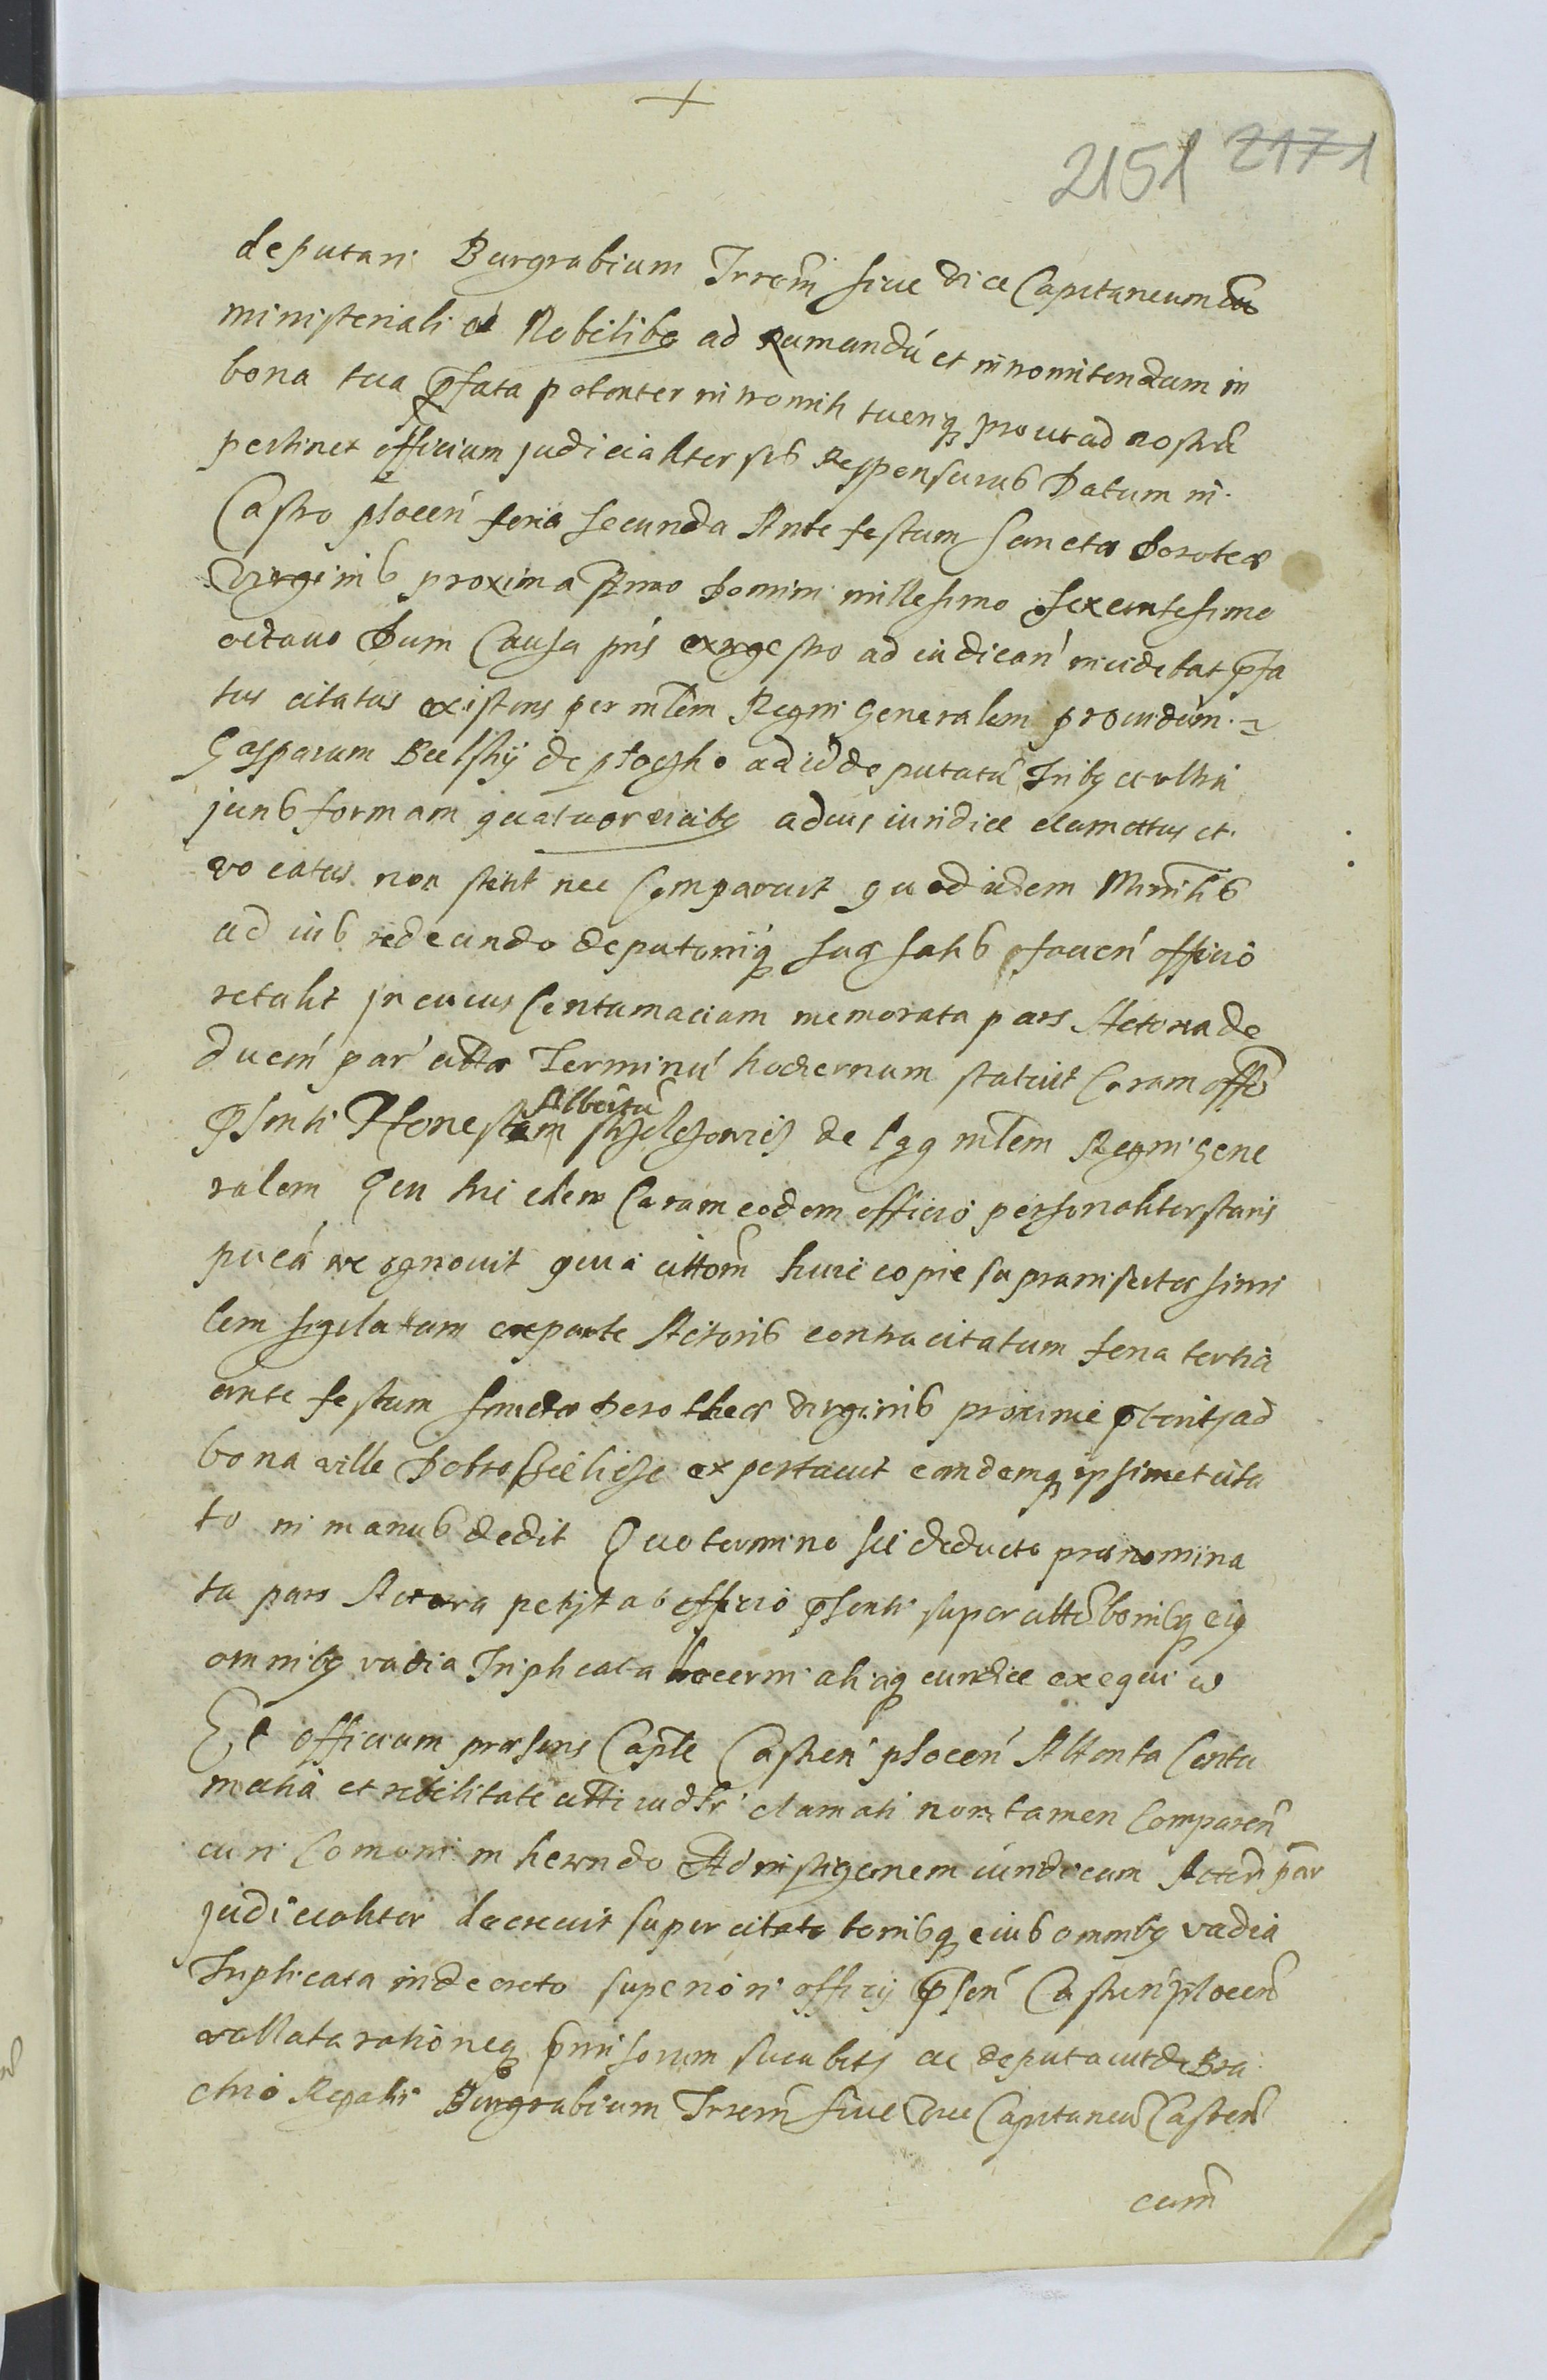 2151 2171
deputari Burgrabium Terren̄ siue vice Capitaneum cū
ministeriali et Nobilibꝯ ad rumandū et intromitendum in
bona tua p̄fata potenter intromitti tuenꝗ prout ad nostrū
pertinet officium judicialiter sis Responsurus Datum in
Castro plocen̄ feria secunda Ante festum Sanctæ Doroteæ
Virginis proxima Anno Domini millesimo sexcentesimo
octauo Dum Causa p̄ns ex regestro ad iudican̄ incidebat p̄fa
tus citatus existens per mlem Regni Generalem prouidum
Gasparum Bielsky de plocko ad id deputatū Tribꝯ et ultra
juris formam quatuor vicibꝯ ad ius iuridice clamatus et
vocatus non stetit nec Comparuit quod idem Minrlis
ad ius redeundo deputoniꝗ suæ satis facien̄ officio
retulit In cuius Contumaciam memorata pars Actorea de
ducen̄ par citta Terminū hodiernum statuit Coram offō
p̄senti Honestum Albertū de mlem Regni Gene
ralem Qui hic idem Coram eodem officio personaliter stans
pucā recognouit quia cittoēm huic copie suprainsertæ simi
lem sigilatam ex parte Actoris contra citatum feria tertia
ante festum Sanctæ Dorotheæ Virginis proxime pteriti ad
bona ville expertauit eandemꝗ ipsimet cita
to in manus dedit Quo termino sic deducto prænomina
ta pars Actorea petijt ab officio p̄senti super cittō bonisꝗ eiꝯ
omnibꝯ vadia Triplicata decerni aliaꝗ iuridice exequi
Et officium præsens Caple Castren̄ plocen̄ Attenta Contu
matia et rebilitate citti iudlr clamati non tamen Comparen̄
cum in herendo Ad instigonem iuridicam Actorē par
judicialiter decreuit super citato bonisꝗ eius omnibꝯ vadia
Triplicata in decreto superiori officij p̄sen̄ Castren̄ plocen̄
vallata rationeꝗ pmissorum sucubitj ac deputauit de Bra
chio Regali Burgrabium Terren̄ siue Vice Capitaneū Castren̄
cum